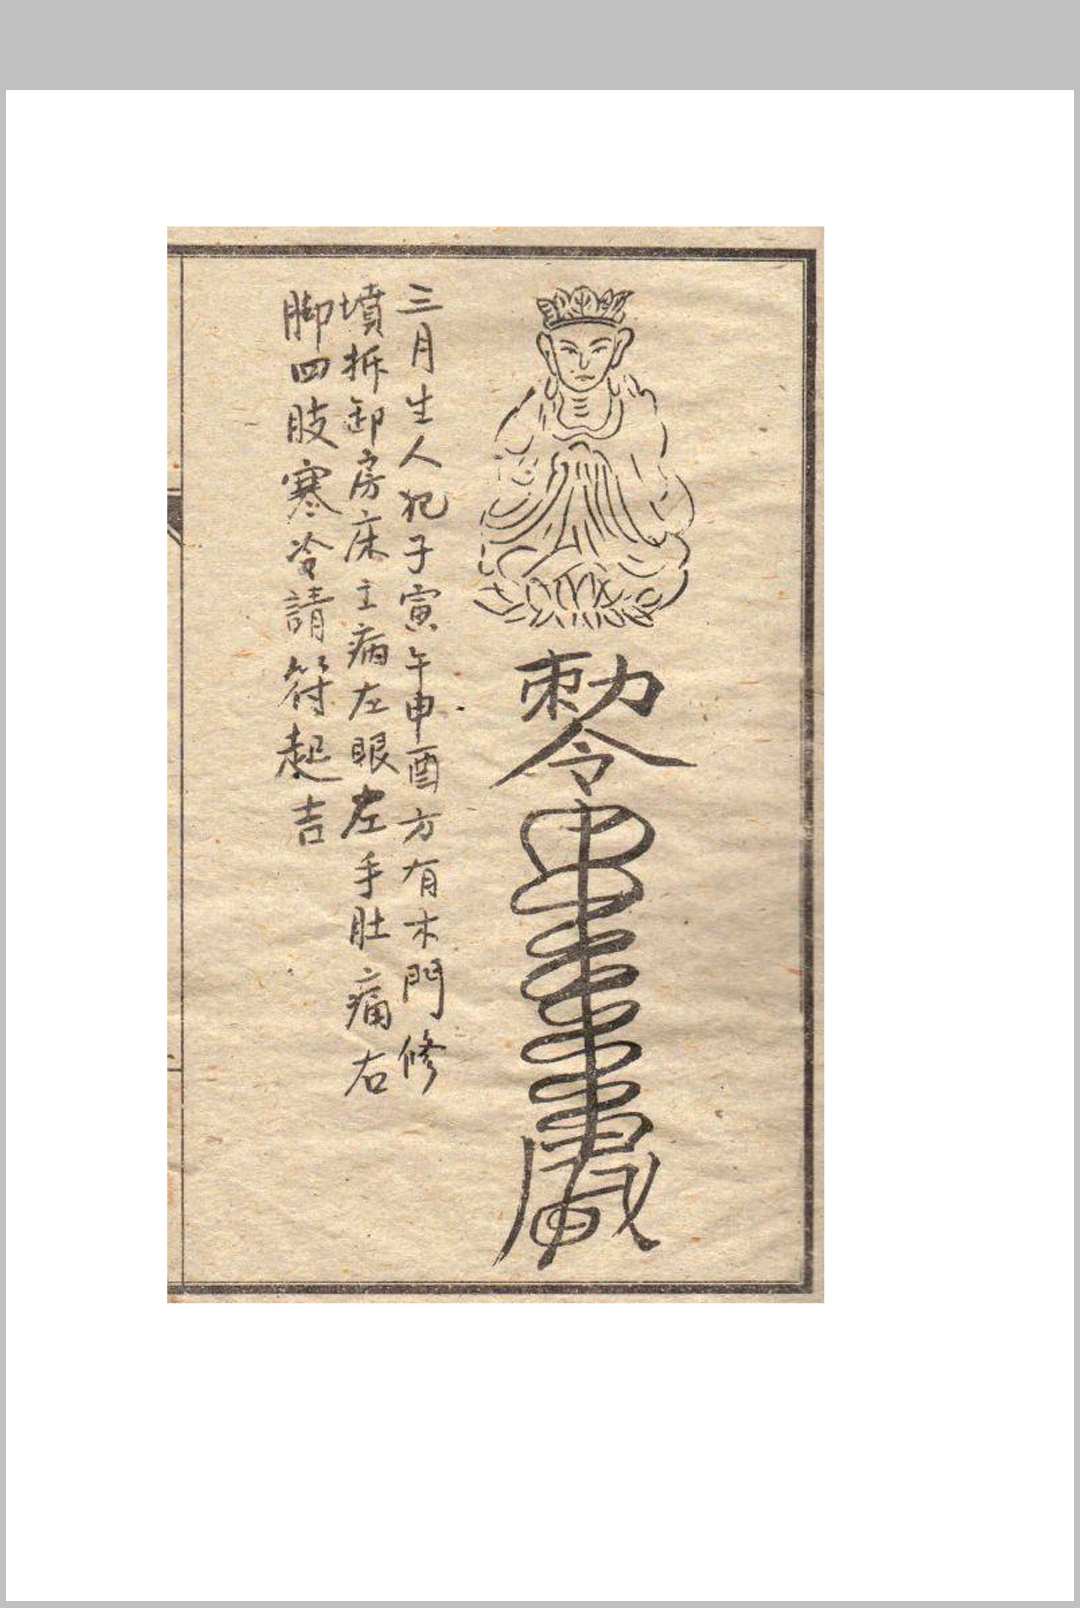 勅令
三月生人犯子寅午申酉方有木門修
墳拆卸房床主病左眼左手肚痛右
脚四肢寒冷請符起吉